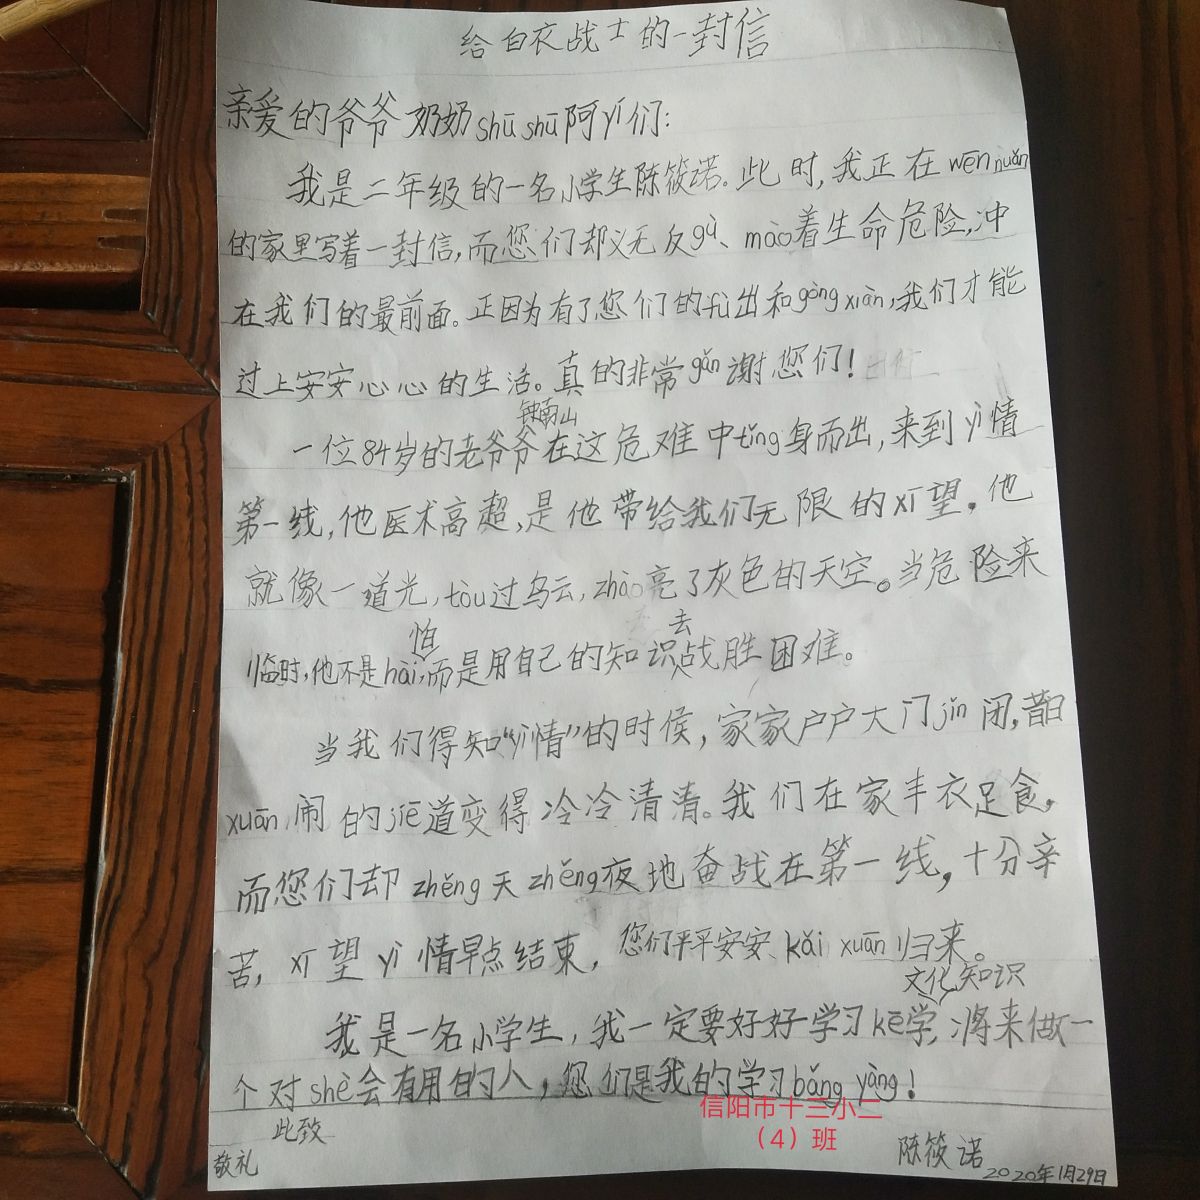 给白衣战士的一封信
亲爱的爷爷奶奶shū shū阿yí们：
我是二年级的一名小学生陈筱诺。此时，我正在wēn nuǎn
的家里写着一封信，而您们却义无反gù、mào着生命危险，冲
在我们的最前面。正因为有了您们的fù出和gòng xiàn，我们才能
过上安安心心的生活。真的非常gǎn谢您们！
钟南山
一位84岁的老爷爷在这危难中tǐng身而出，来到yì情
第一线，他医术高超，是他带给我们无限的xī望。他
就像一道光，tòu过乌云，zhào亮了灰色的天空。当危险来
怕 去
临时，他不是hài，而是用自己的知识战胜困难。
当我们得知“yì情”的时候，家家户户大门jǐn闭，昔日
xuān闹的jiē道变得冷冷清清。我们在家丰衣足食，
而您们却zhěng天zhěng夜地奋战在第一线，十分辛
苦，xī望yì情早点结束，您们平平安安、kǎi xuán归来。
文化知识
我是一名小学生，我一定要好好学习kē学，将来做一
个对shè会有用的人，您们是我的学习bǎng yàng！
信阳市十三小二
（4）班
此致
敬礼
陈筱诺
2020年1月29日